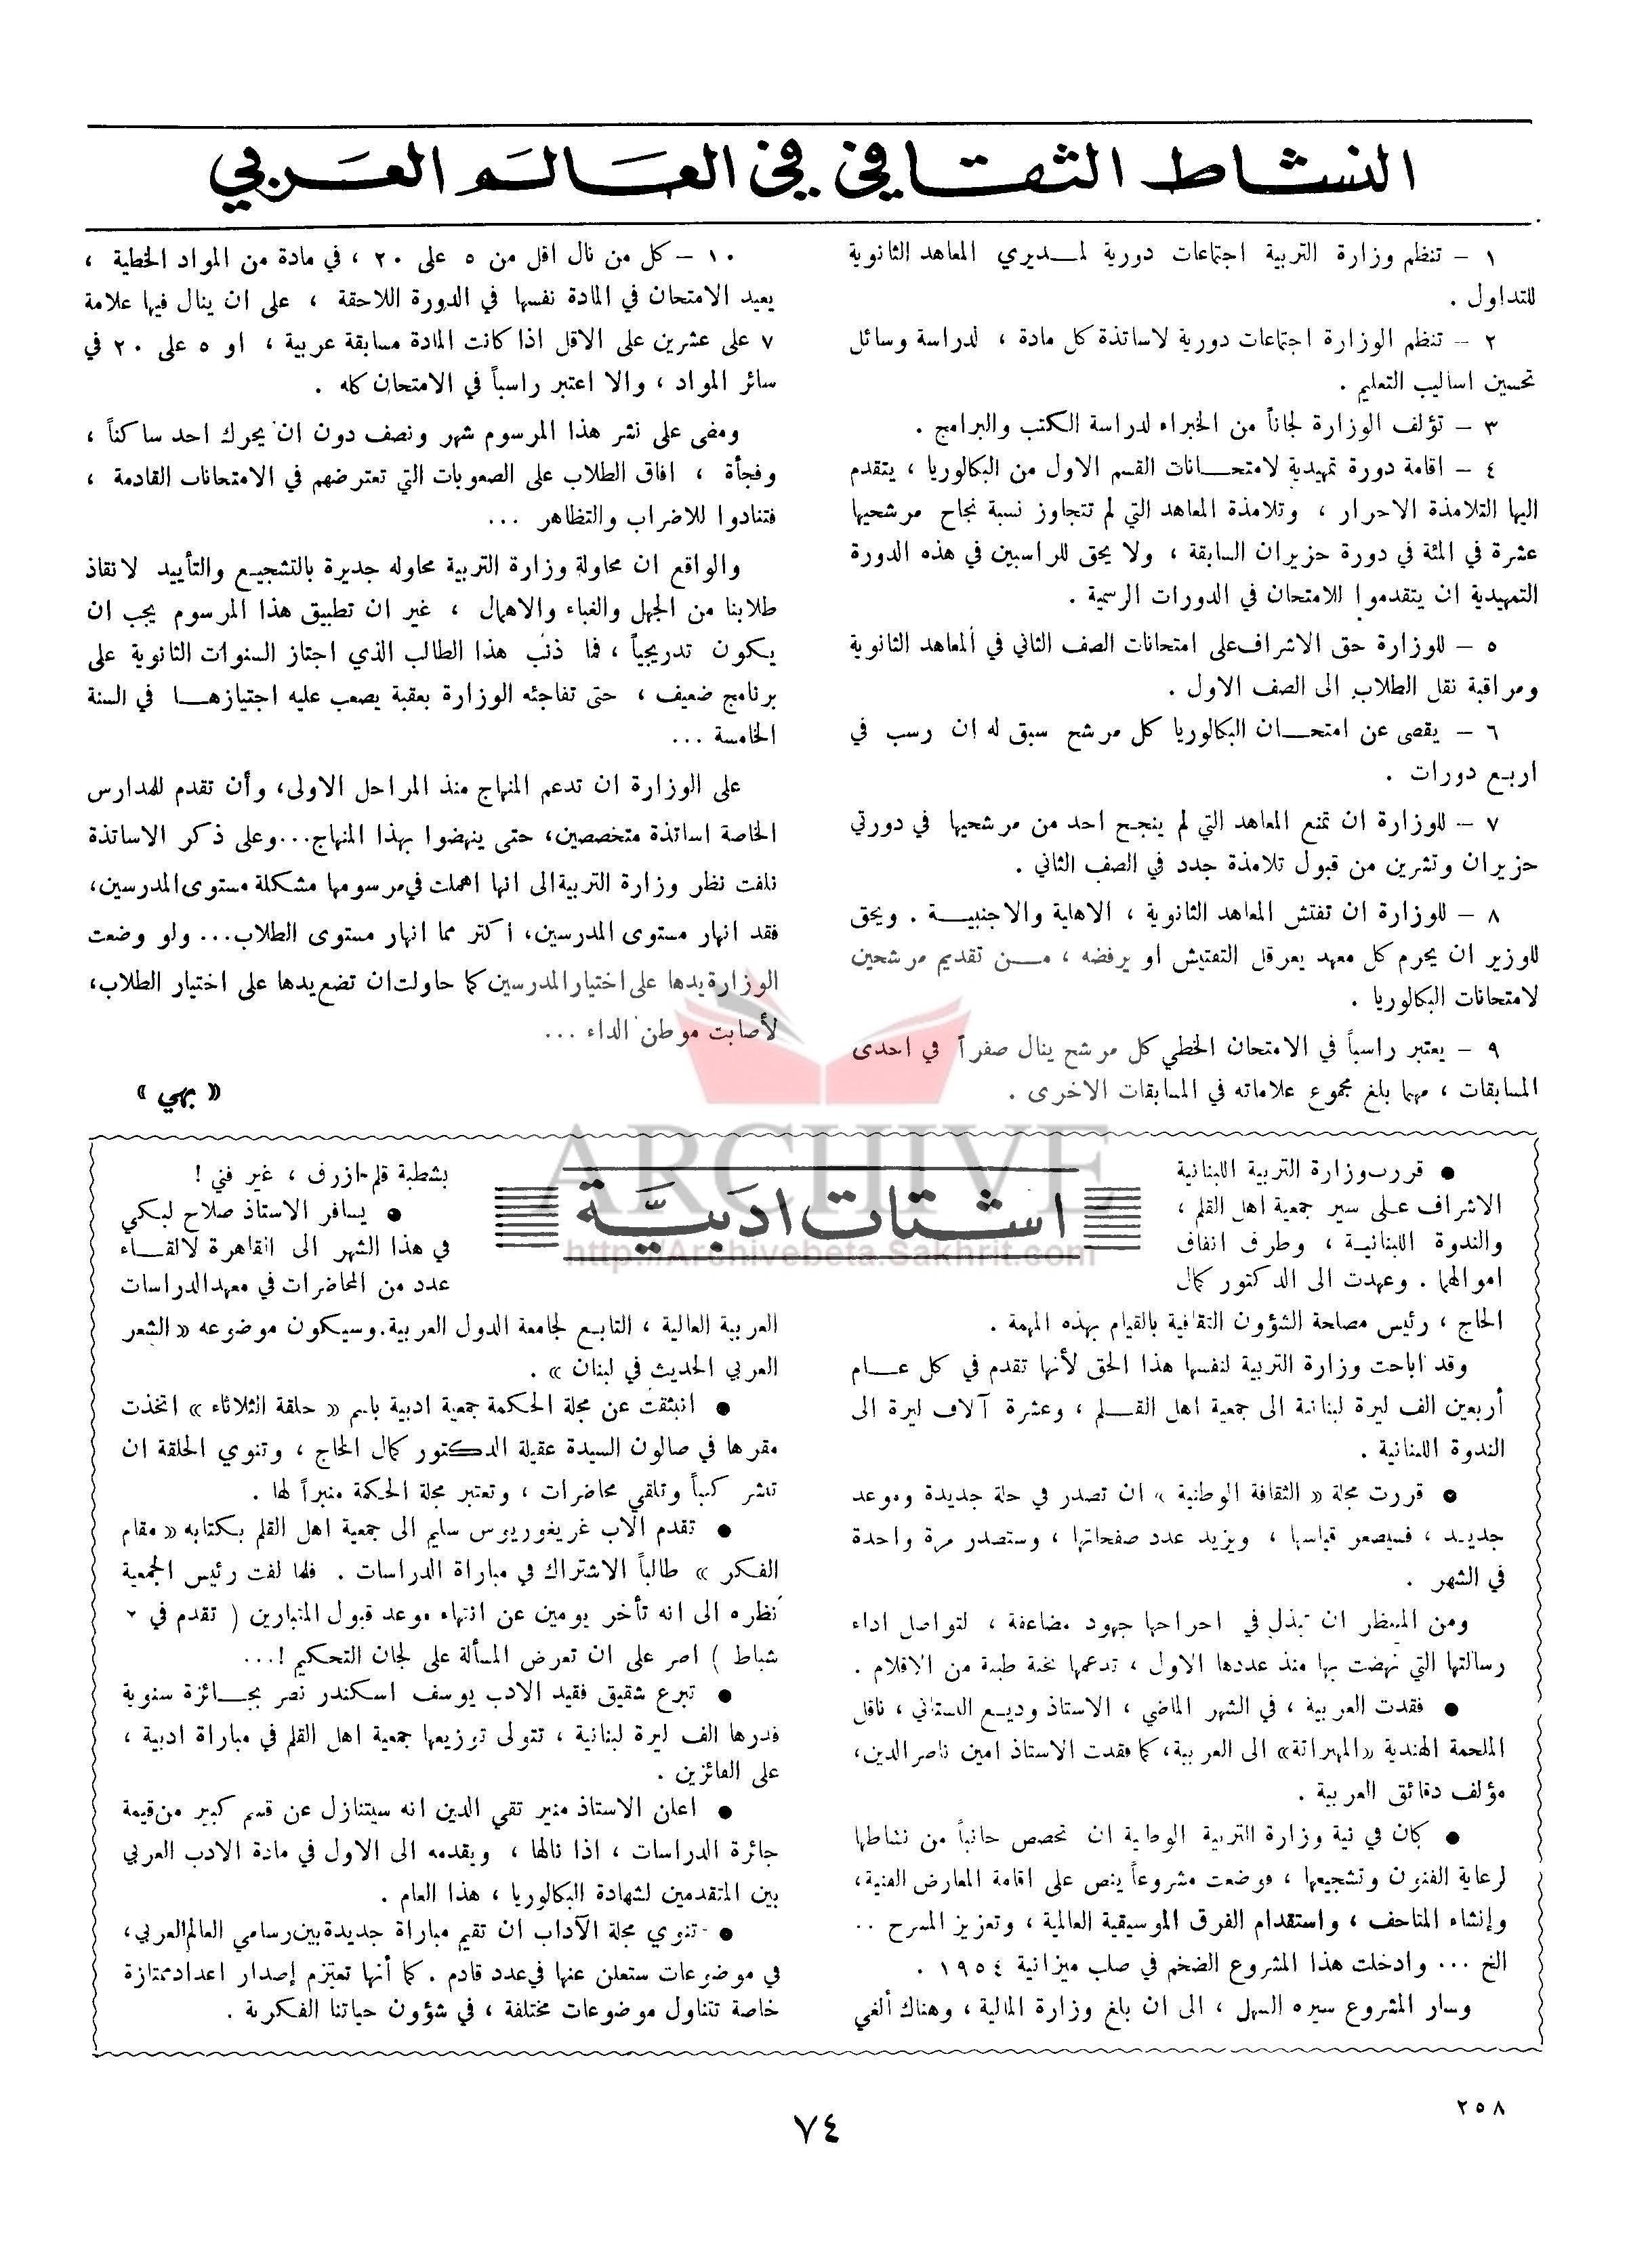 النشاط الثقافي في العالم العربي
١ – تنظم وزارة التربية اجتماعات دورية لمديري المعاهد الثانوية
للتداول .
٢ – تنظم الوزارة اجتماعات دورية لاساتذة كل مادة ، لدراسة وسائل
تحسين اساليب التعليم .
٣ – تؤلف الوزارة لجاناً من الخبراء لدراسة الكتب والبرامج .
٤ – اقامة دورة تمهيدية لامتحانات القسم الاول من البكالوريا ، يتقدم
اليها التلامذة الاحرار ، وتلامذة المعاهد التي لم تتجاوز نسبة نجاح مرشحيها
عشرة في المئة في دورة حزيران السابقة ، ولا يحق للراسبين في هذه الدورة
التمهيدية ان يتقدموا للامتحان في الدورات الرسمية .
٥ – للوزارة حق الاشراف على امتحانات الصف الثاني في المعاهد الثانوية
ومراقبة نقل الطلاب الى الصف الاول .
٦ – يقصى عن امتحان البكالوريا كل مرشح سبق له ان رسب في
اربع دورات .
٧ – للوزارة ان تمنع المعاهد التي لم ينجح احد من مرشحيها في دورتي
حزيران وتشرين من قبول تلامذة جدد في الصف الثاني .
٨ – للوزارة ان تفتش المعاهد الثانوية ، الاهلية والاجنبية . ويحق
للوزير ان يحرم كل معهد يعرقل التفتيش او يرفضه ، من تقديم مرشحين
لامتحانات البكالوريا .
٩ – يعتبر راسباً في الامتحان الخطي كل مرشح ينال صفراً في احدى
المسابقات ، مهما بلغ مجموع علاماته في المسابقات الاخرى .
١٠ – كل من نال اقل من ٥ على ٢٠ ، في مادة من المواد الخطية ،
يعيد الامتحان في المادة نفسها في الدورة اللاحقة ، على ان ينال فيها علامة
٧ على عشرين على الاقل اذا كانت المادة مسابقة عربية ، او ٥ على ٢٠ في
سائر المواد ، والا اعتبر راسباً في الامتحان كله .
ومضى على نشر هذا المرسوم شهر ونصف دون ان يحرك احد ساكناً ،
وفجأة ، افاق الطلاب على الصعوبات التي تعترضهم في الامتحانات القادمة ،
فتنادوا للاضراب والتظاهر ...
والواقع ان محاولة وزارة التربية محاوله جديرة بالتشجيع والتأييد لانقاذ
طلابنا من الجهل والغباء والاهمال ، غير ان تطبيق هذا المرسوم يجب ان
يكون تدريجياً ، فما ذنب هذا الطالب الذي اجتاز السنوات الثانوية على
برنامج ضعيف ، حتى تفاجئه الوزارة بعقبة يصعب عليه اجتيازها في السنة
الخامسة ...
على الوزارة ان تدعم المنهاج منذ المراحل الاولى، وأن تقدم للمدارس
الخاصة اساتذة متخصصين، حتى ينهضوا بهذا المنهاج...وعلى ذكر الاساتذة
نلفت نظر وزارة التربية الى انها اهملت في مرسومها مشكلة مستوى المدرسين،
فقد انهار مستوى المدرسين، اكثر مما انهار مستوى الطلاب... ولو وضعت
الوزارة يدها على اختيار المدرسين كما حاولت ان تضع يدها على اختيار الطلاب،
لأصابت موطن الداء ...
« بهي »
اشتات ادبية
● قررت وزارة التربية اللبنانية
الاشراف على سير جمعية اهل القلم ،
والندوة اللبنانية ، وطرف انفاف
اموالهما . وعهدت الى الدكتور كمال
الحاج ، رئيس مصلحة الشؤون الثقافية بالقيام بهذه المهمة .
وقد اباحت وزارة التربية لنفسها هذا الحق لأنها تقدم في كل عام
أربعين الف ليرة لبنانية الى جمعية اهل القلم ، وعشرة آلاف ليرة الى
الندوة اللبنانية .
● قررت مجلة « الثقافة الوطنية » ان تصدر في حلة جديدة وموعد
جديد ، فسيصغر قياسها ، ويزيد عدد صفحاتها ، وستصدر مرة واحدة
في الشهر .
ومن المنتظر ان تبذل في اخراجها جهود مضاعفة ، لتواصل اداء
رسالتها التي نهضت بها منذ عددها الاول ، تدعمها نخبة طيبة من الاقلام .
● فقدت العربية ، في الشهر الماضي ، الاستاذ وديع البستاني ، ناقل
الملحمة الهندية «المهبراتة» الى العربية، كما فقدت الاستاذ امين ناصر الدين،
مؤلف دقائق العربية .
● كان في نية وزارة التربية الوطنية ان تخصص جانباً من نشاطها
لرعاية الفنون وتشجيعها ، فوضعت مشروعاً ينص على اقامة المعارض الفنية،
وإنشاء المتاحف ، واستقدام الفرق الموسيقية العالمية ، وتعزيز المسرح ..
الخ ... وادخلت هذا المشروع الضخم في صلب ميزانية ١٩٥٤ .
وسار المشروع سيره السهل ، الى ان بلغ وزارة المالية ، وهناك ألغي
بشطبة قلم ازرق ، غير فني !
● يسافر الاستاذ صلاح لبكي
في هذا الشهر الى القاهرة لالقاء
عدد من المحاضرات في معهد الدراسات
العربية العالية ، التابع لجامعة الدول العربية. وسيكون موضوعه « الشعر
العربي الحديث في لبنان » .
● انبثقت عن مجلة الحكمة جمعية ادبية باسم « حلقة الثلاثاء » اتخذت
مقرها في صالون السيدة عقيلة الدكتور كمال الحاج ، وتنوي الحلقة ان
تنشر كتباً وتلقي محاضرات ، وتعتبر مجلة الحكمة منبراً لها .
● تقدم الاب غريغوريوس سليم الى جمعية اهل القلم بكتابه « مقام
الفكر » طالباً الاشتراك في مباراة الدراسات . فلما لفت رئيس الجمعية
نظره الى انه تأخر يومين عن انتهاء موعد قبول المتبارين ( تقدم في ٢
شباط ) اصر على ان تعرض المسألة على لجان التحكيم !...
● تبرع شقيق فقيد الادب يوسف اسكندر نصر بجائزة سنوية
قدرها الف ليرة لبنانية ، تتولى توزيعها جمعية اهل القلم في مباراة ادبية ،
على الفائزين .
● اعلن الاستاذ منير تقي الدين انه سيتنازل عن قسم كبير من قيمة
جائزة الدراسات ، اذا نالها ، ويقدمه الى الاول في مادة الادب العربي
بين المتقدمين لشهادة البكالوريا ، هذا العام .
● تنوي مجلة الآداب ان تقيم مباراة جديدة بين رسامي العالم العربي،
في موضوعات ستعلن عنها في عدد قادم . كما أنها تعتزم إصدار اعداد ممتازة
خاصة تتناول موضوعات مختلفة ، في شؤون حياتنا الفكرية .
ARCHIVE
http://Archivebeta.Sakhrit.com
٢٥٨
٧٤